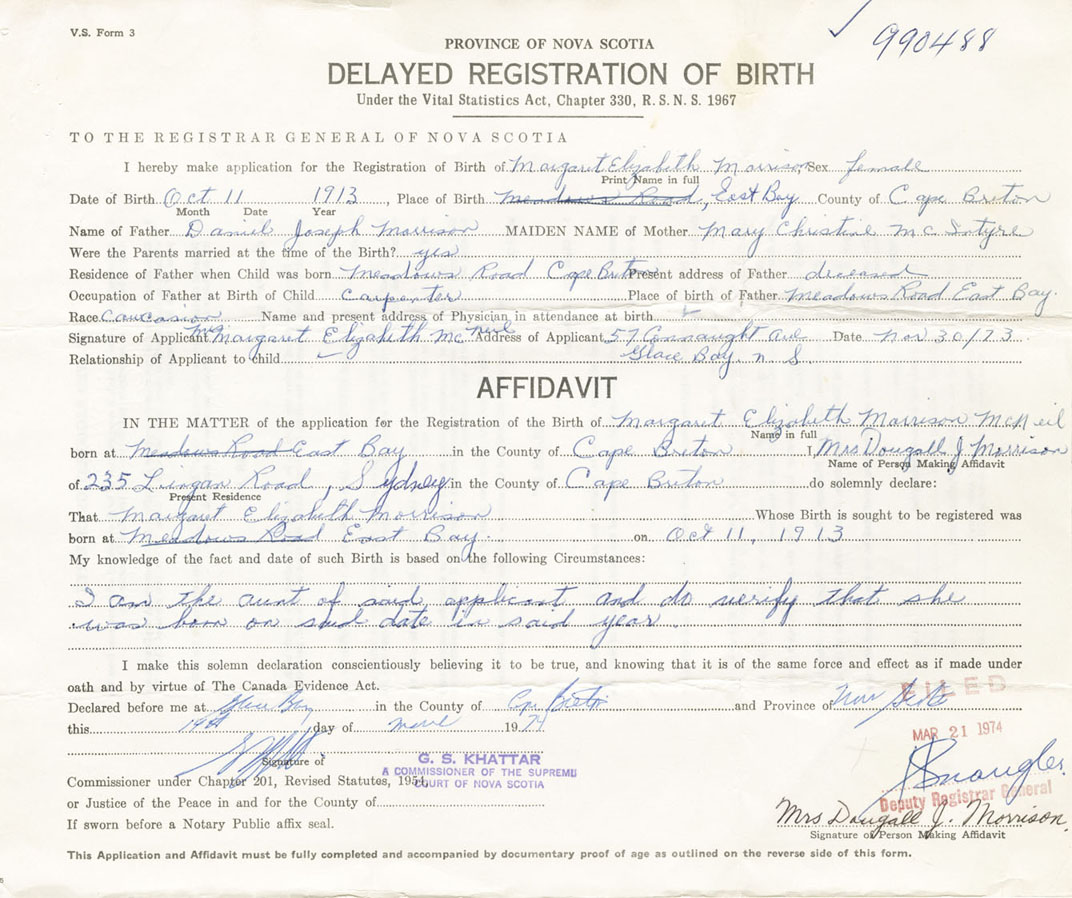 V.S. Form 3
990488
PROVINCE OF NOVA SCOTIA
DELAYED REGISTRATION OF BIRTH
Under the Vital Statistics Act, Chapter 330, R.S.N.S. 1967
TO THE REGISTRAR GENERAL OF NOVA SCOTIA
I hereby make application for the Registration of Birth of Margaret Elizabeth Morrison Sex female
Print Name in full
Date of Birth Oct 11 1913, Place of Birth Meadows Road, East Bay County of Cape Breton
Month Date Year
Name of Father Daniel Joseph Morrison MAIDEN NAME of Mother Mary Christine Mc Intyre
Were the Parents married at the time of the Birth? yes
Residence of Father when Child was born Meadows Road Cape Breton Present address of Father deceased
Occupation of Father at Birth of Child Carpenter Place of birth of Father Meadows Road East Bay.
Race Caucasion Name and present address of Physician in attendance at birth
Signature of Applicant Mrs Margaret Elizabeth McNeil Address of Applicant 57 Connaught Ave Date Nov 30/73
Relationship of Applicant to child Glace Bay, N. S
AFFIDAVIT
IN THE MATTER of the application for the Registration of the Birth of Margaret Elizabeth Morrison McNeil
Name in full
born at Meadows Road East Bay in the County of Cape Breton I, Mrs Dougall J Morrison
Name of Person Making Affidavit
of 235 Lingan Road, Sydney in the County of Cape Breton do solemnly declare:
Present Residence
That Margaret Elizabeth Morrison Whose Birth is sought to be registered was
born at Meadows Road East Bay. on Oct 11, 1913
My knowledge of the fact and date of such Birth is based on the following Circumstances:
I am the aunt of said applicant and do verify that she
was born on said date in said year.
I make this solemn declaration conscientiously believing it to be true, and knowing that it is of the same force and effect as if made under
oath and by virtue of The Canada Evidence Act.
Declared before me at Glace Bay in the County of Cape Breton and Province of Nova Scotia
FILED
this day of 1974
MAR 21 1974
Signature of
G. S. KHATTAR
A COMMISSIONER OF THE SUPREME
COURT OF NOVA SCOTIA
Commissioner under Chapter 201, Revised Statutes, 1954,
or Justice of the Peace in and for the County of
Deputy Registrar General
If sworn before a Notary Public affix seal.
Mrs Dougall J. Morrison.
Signature of Person Making Affidavit
This Application and Affidavit must be fully completed and accompanied by documentary proof of age as outlined on the reverse side of this form.